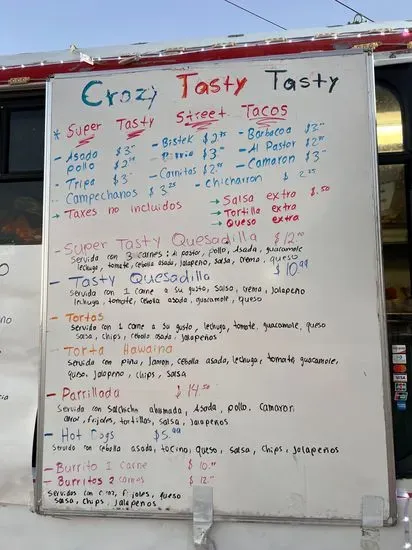 Crazy Tasty Tasty
* Super Tasty Street Tacos
- Asada $3.00 - Bistek $2.75 - Barbacoa $3.00
pollo $2.75 - Birria $3.00 - Al Pastor $2.00
- Tripa $3.00 - Carnitas $2.75 - Camaron $3.00
- Campechanos $3.25 - Chicharron $2.25
→ Taxes no incluidos → Salsa extra $.50
→ Tortilla extra
→ Queso extra
- Super Tasty Quesadilla $12.00
Servida con 3 carnes: Al pastor, pollo, Asada, guacamole
lechuga, tomate, cebolla asada, jalapeño, salsa, crema, queso
- Tasty Quesadilla $10.99
Servida con 1 carne a su gusto, salsa, crema, jalapeno
lechuga, tomate, cebolla asada, guacamole, queso
- Tortas
Servida con 1 carne a su gusto, lechuga, tomate, guacamole, queso
salsa, chips, cebolla asada, jalapeños
- Torta Hawaina
Servida con piña, Jamon, cebolla asada, lechuga, tomate guacamole,
queso, jalapeno, chips, salsa
- Parrillada $14.50
Servida con salchicha ahumada, Asada, pollo, camaron
arroz, frijoles, tortillas, salsa, jalapenos
- Hot Dogs $5.99
Servido con cebolla asada, tocino, queso, salsa, chips, jalapeños
- Burrito 1 carne $10.00
- Burritos 2 carnes $12.00
Servidos con arroz, frijoles, queso
salsa, chips, jalapeños
VISA